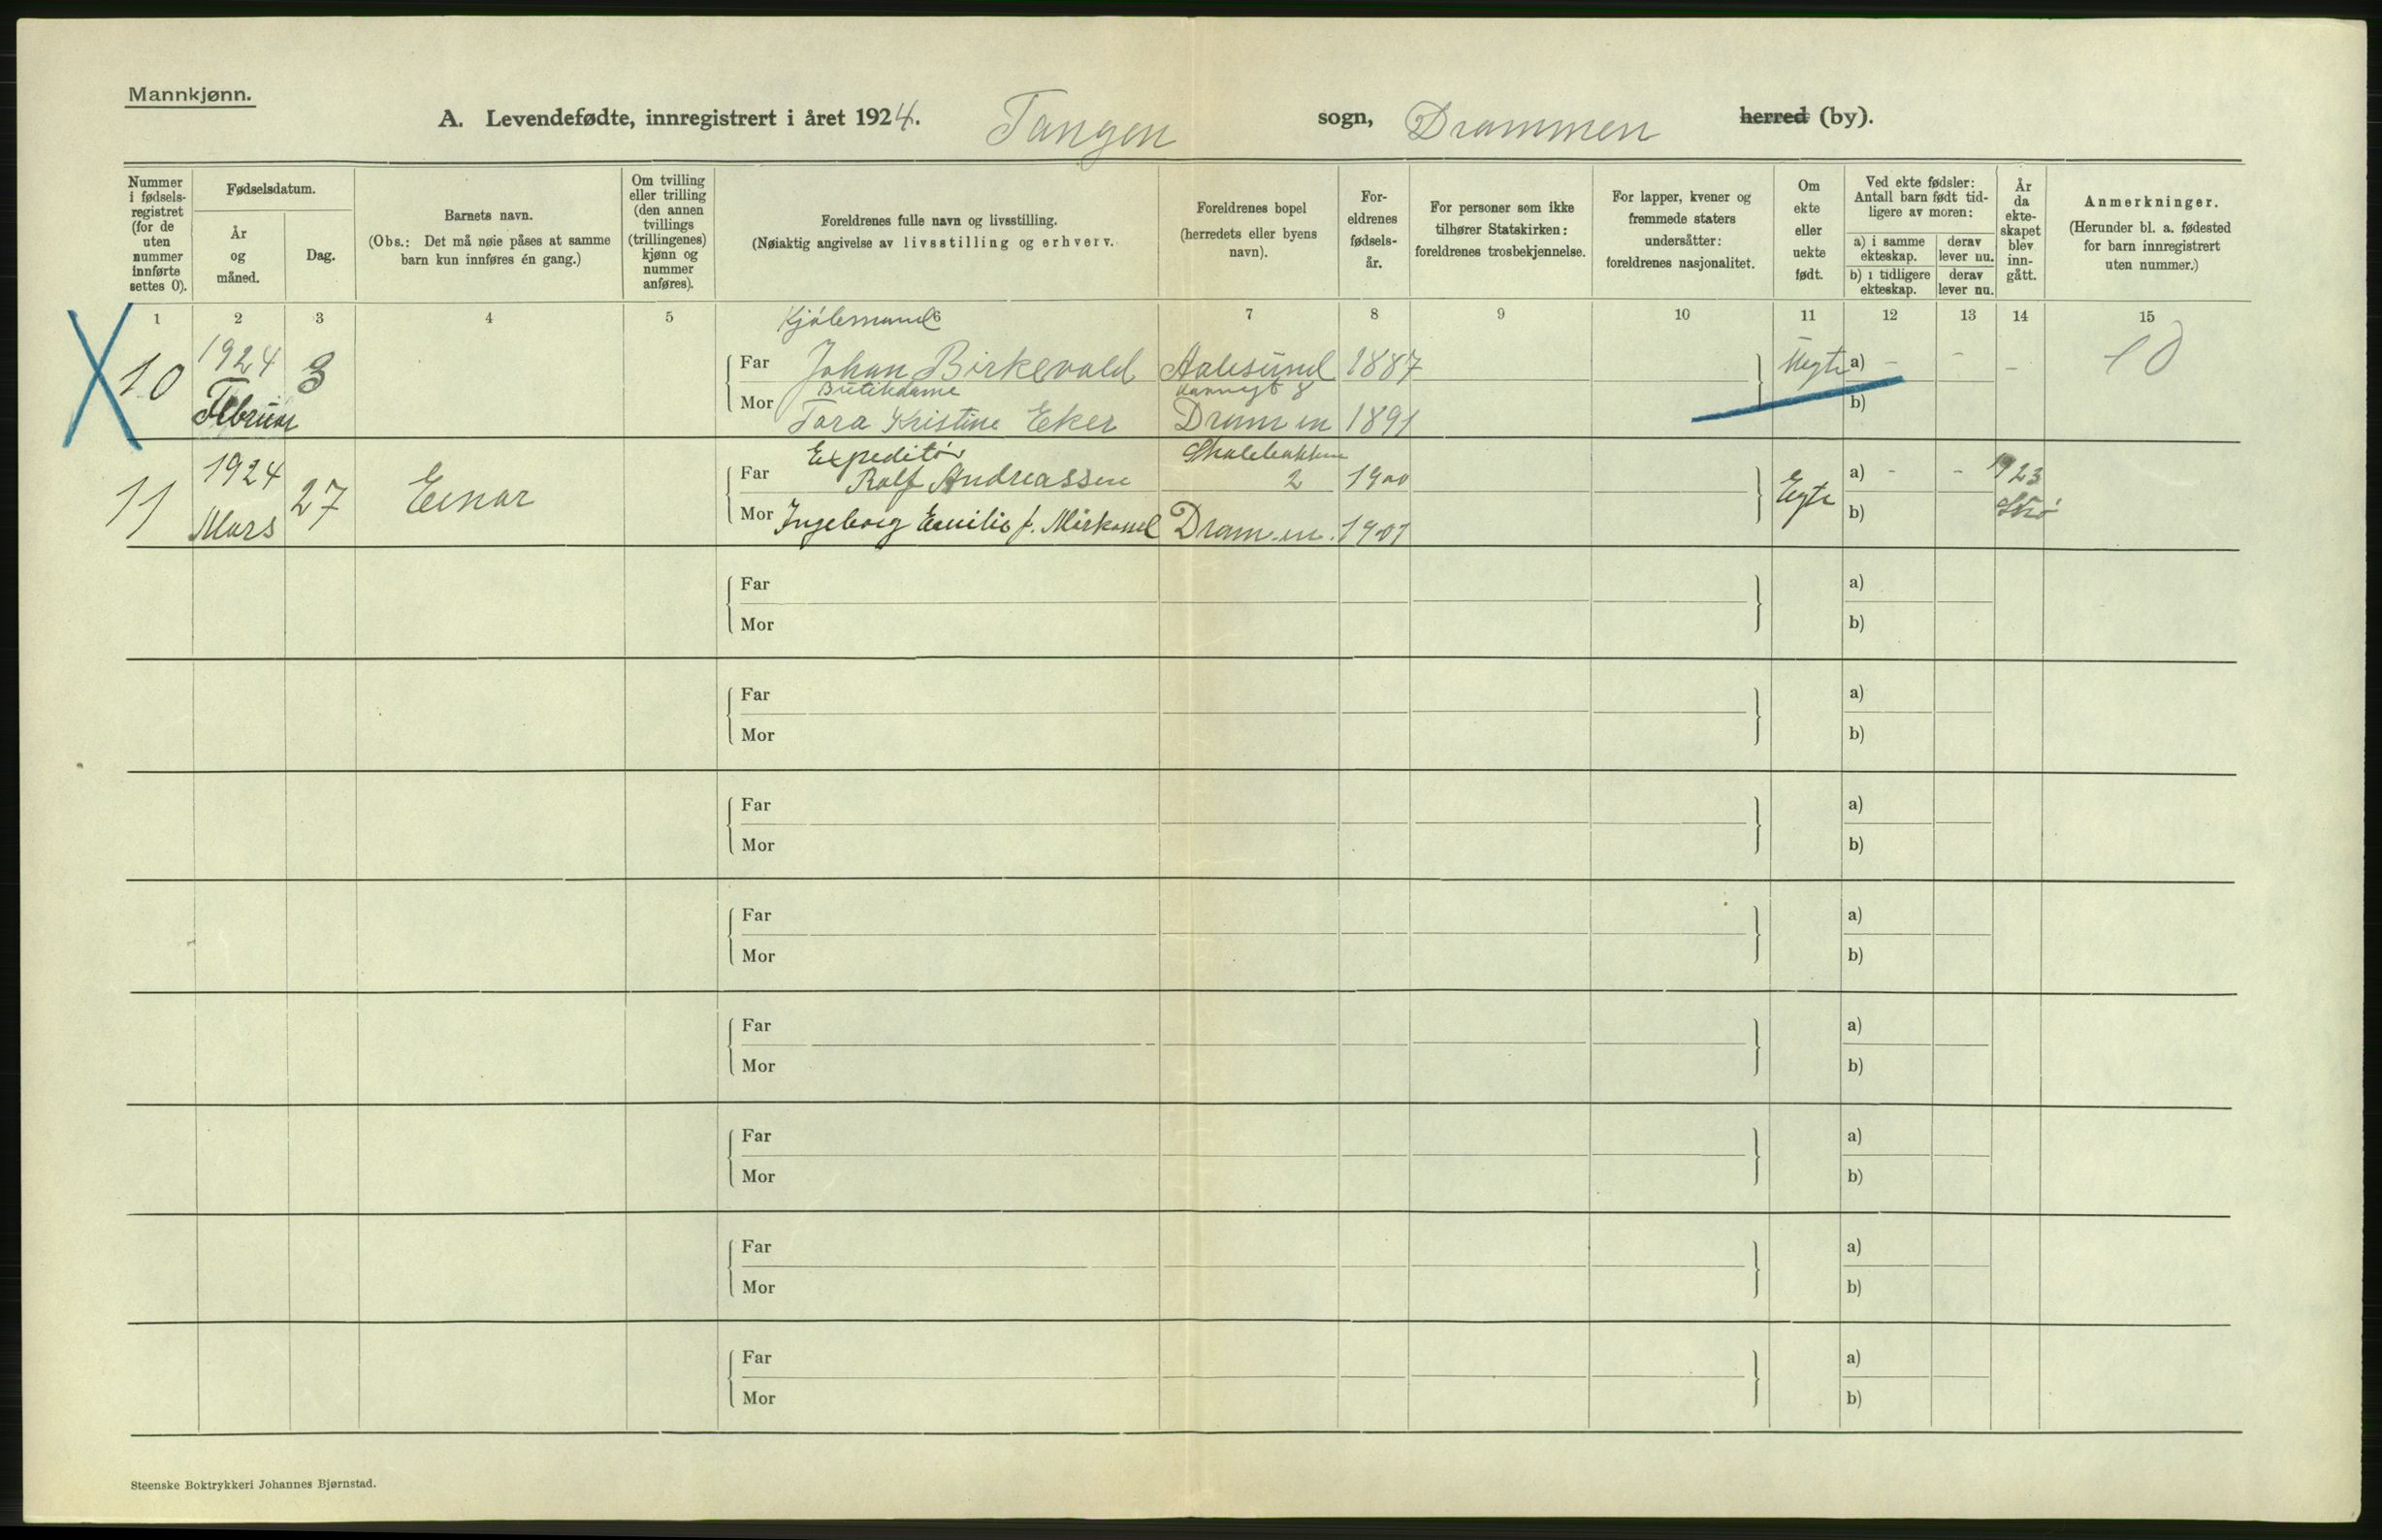 Mannkjønn.
A. Levendefødte, innregistrert i året 1924. Tangen sogn, Drammen herred (by).
Nummer i fødselsregistret (for de uten nummer innførte settes 0).
Fødselsdatum.
År og måned.
Dag.
Barnets navn.
(Obs.: Det må nøie påses at samme barn kun innføres én gang.)
Om tvilling eller trilling (den annen tvillings (trillingenes) kjønn og nummer anføres).
Foreldrenes fulle navn og livsstilling.
(Nøiaktig angivelse av livsstilling og erhverv.
Foreldrenes bopel (herredets eller byens navn).
Foreldrenes fødselsår.
For personer som ikke tilhører Statskirken: foreldrenes trosbekjennelse.
For lapper, kvener og fremmede staters undersåtter: foreldrenes nasjonalitet.
Om ekte eller uekte født.
Ved ekte fødsler: Antall barn født tidligere av moren:
a) i samme ekteskap.
derav lever nu.
b) i tidligere ekteskap.
derav lever nu.
År da ekteskapet blev inngått.
Anmerkninger.
(Herunder bl. a. fødested for barn innregistrert uten nummer.)
1 2 3 4 5 6 7 8 9 10 11 12 13 14 15
10 1924 Februar 3
Far Johan Birkevold Aalesund 1887 Uegte a) - - - 10
Butikdame
Mor Tora Kristine Eker Drammen 1891 b)
11 1924 Mars 27 Einar
Expeditør
Far Rolf Andreassen 2 1900 Egte a) - - 1923
Mor Ingeborg Emilie f. Drammen 1901 b)
Far a)
Mor b)
Far a)
Mor b)
Far a)
Mor b)
Far a)
Mor b)
Far a)
Mor b)
Far a)
Mor b)
Far a)
Mor b)
Far a)
Mor b)
Steenske Boktrykkeri Johannes Bjørnstad.